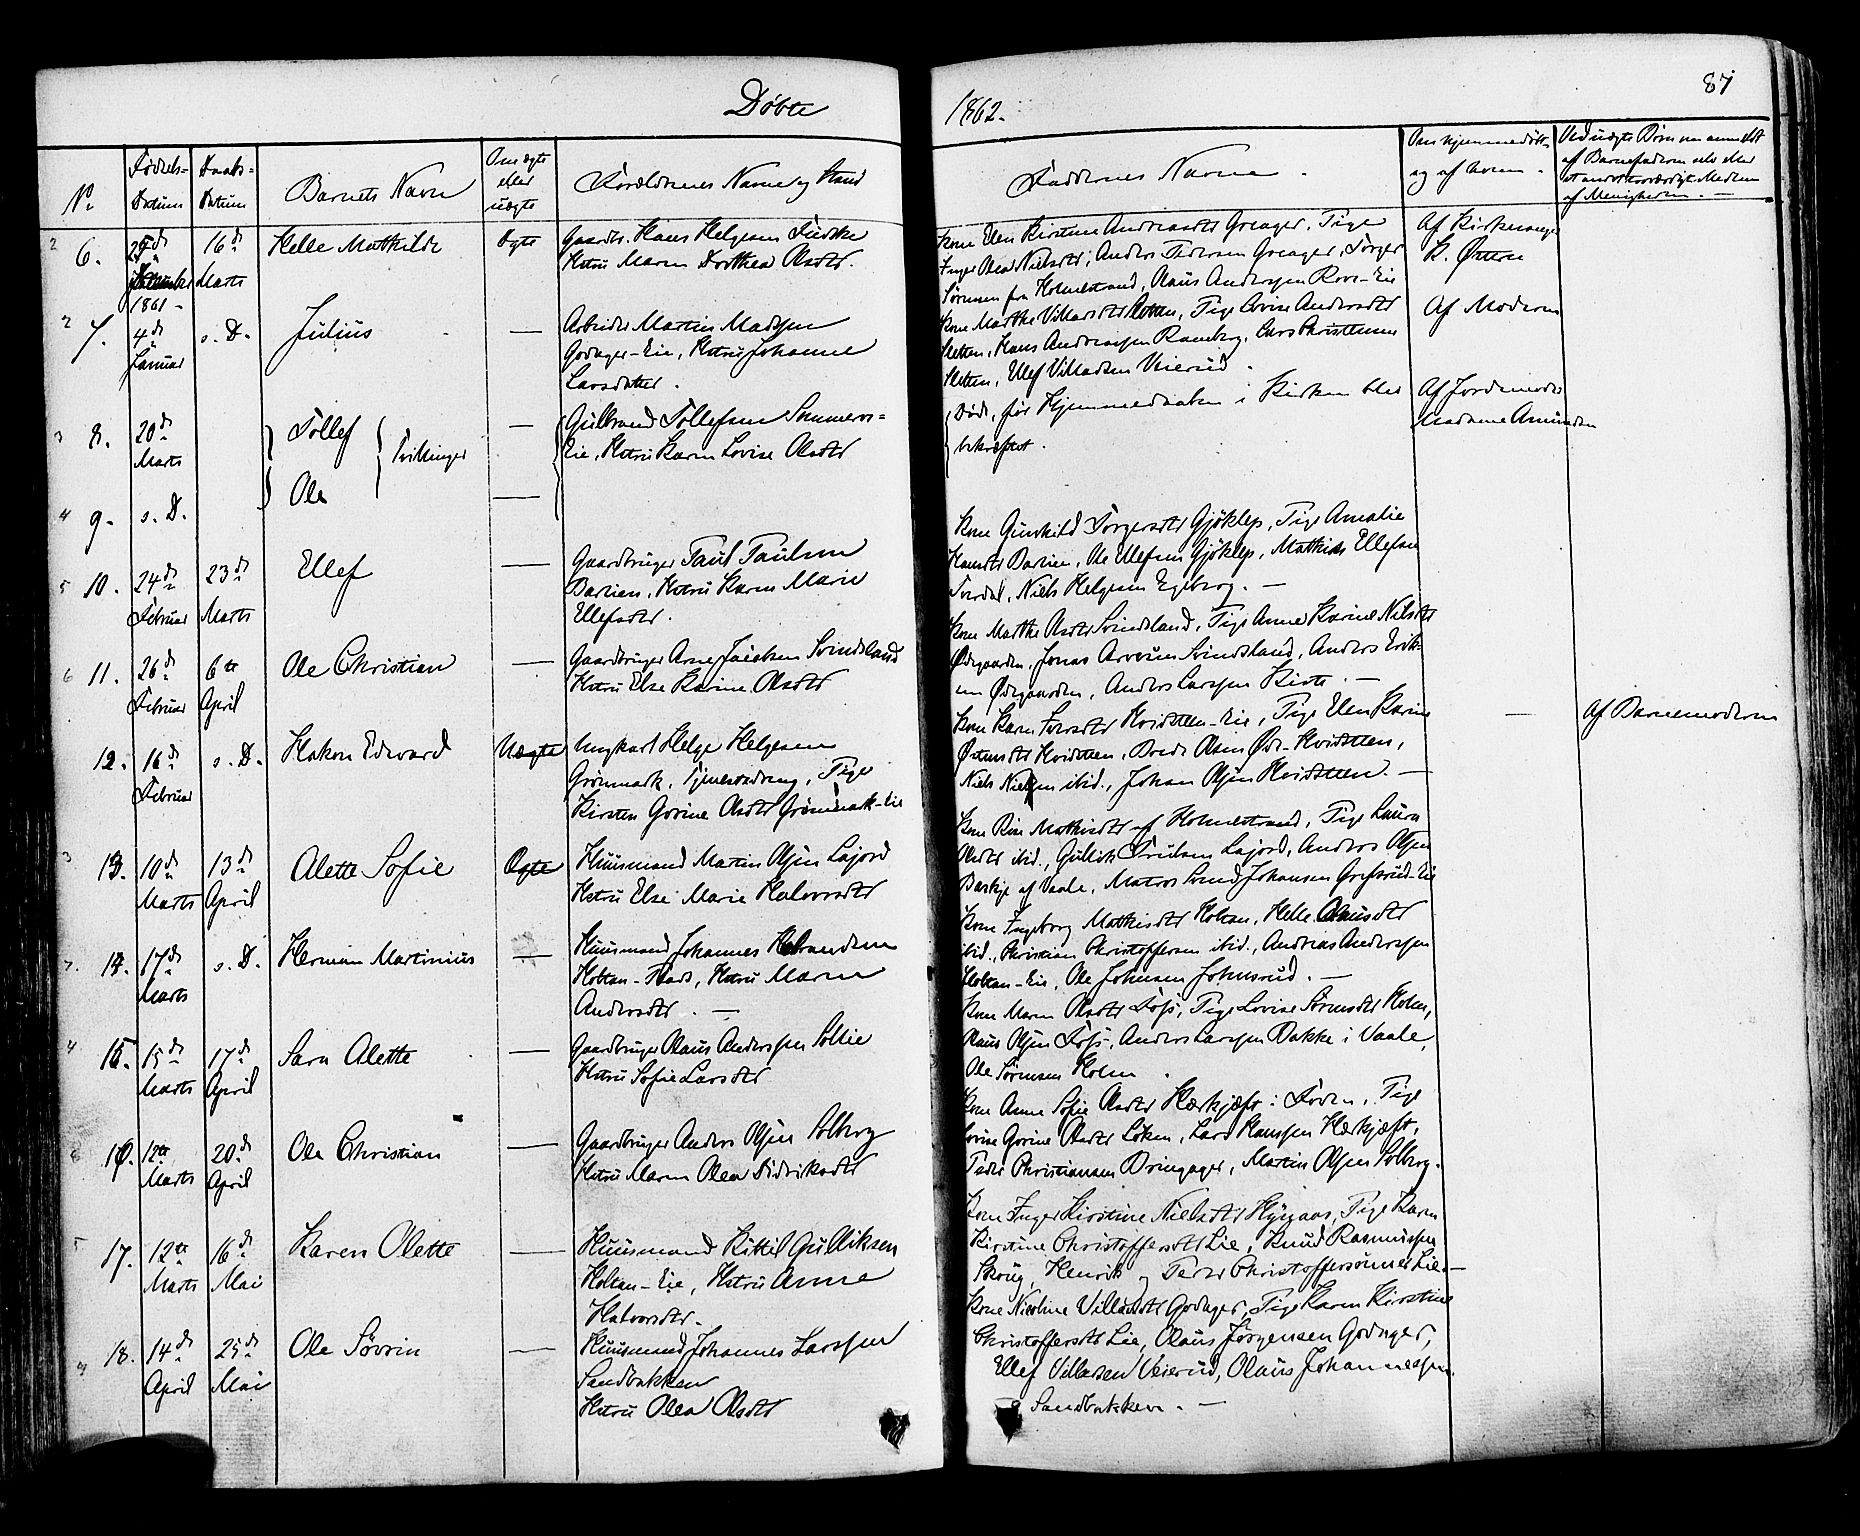 Døbte
1862.
87
No
Fødsels-
Datum
Daabs-
Datum
Barnets Navn
Om ægte
eller
uægte
Forældrenes Navne og Stand
Faddernes Navne
Om hjemmedøbt
og af hvem
Ved uægte Børn om anmeldt
af Barnefaderen selv eller
et andet troværdigt Medlem
af Menigheden.
6. 16de Helle Mathilde Ægte Gaardbr. Hans Helgesen
Marts Hstru Maren Dorthea Olsdtr.
1861
Kone Elen Kirstine Andreasdtr Greager, Pige
Inger Olea Nielsdtr, Anders Pedersen Greager,
Sørensen fra Holmestrand, Olaus Andersen Rove-Eie
Af Kirkesanger
K. Østern
7. 4de s. D. Julius — Arbeider Martin Madssen
Januar Godager-Eie, Hstru Johanne
Larsdatter.
Kone Marthe Villadsdtr, Pige Lovise Andersdtr
Sletten, Hans Andreassen Ramberg, Lars Christensen
Sletten, Ellef Villadsen Veierud.
Af Moderen
8. 20de Tollef Tvillinger — Gulbrand Tollefsen
Marts Eie, Hstru Karen Lovise Olsdtr
Døde, før Hjemmedaaben i Kirken blev
bekræftet.
Af Jordemoder
Madame Amundsen
9. s. D. Ole —
10. 24de 23de Ellef — Gaardbruger Paul Paulsen
Februar Marts Barlien, Hstru Karen Marie
Ellefsdtr.
Kone Gunhild Torgersdtr Gjøklep, Pige Amalie
Hansdtr Barlien, Ole Ellefsen Gjøklep, Mathias Ellefsen
Niels Helgesen Egeberg. —
11. 26de 6te Ole Christian — Gaardbruger Arne Jacobsen Svindsland
Februar April Hstru Else Karine Olsdtr
Kone Marthe Olsdtr Svindsland, Pige Anne Karine Nilsdtr
Ødegaarden, Jonas Arnesen Svindsland, Anders Erik-
sen Ødegaarden, Anders Larssen —
12. 16de s. D. Hakon Edvard Uægte Ungkarl Helge Helgesen
Februar Grønmark, Tjenestedreng, Pige
Kirsten Gorine Olsdtr Grønmark-Eie
Kone Karen Iversdtr Hvidsteen-Eie, Pige Elen Karine
Østensdtr Hvidsteen, Brede Olsen Øde-Hvidsteen,
Niels Nielsen ibid., Johan Olsen Hvidsteen. —
— Af Barnemoderen
13. 10de 13de Alette Sofie Ægte Huusmand Martin Olsen Lajord
Marts April Hstru Else Marie Halvorsdtr
Mathisdtr af Holmestrand, Pige Laura
Olsdtr ibid., Gullik Truelsen Lajord, Anders Olsen
Baskje af Vaale, Matros Svend Johansen
14. 17de s. D. Herman Martinius — Huusmand Johannes
Marts Holtan-Plads, Hstru Maren
Andersdtr. —
Kone Ingeborg Mathisdtr Holtan, Helle
ibid., Christian Christoffersen ibid., Andreas Anderssen
Holtan-Eie, Ole Johnsen Johnsrud. —
15. 15de 17de Sara Alette — Gaardbruger Olaus Anderssen Sollie
Marts April Hstru Sofie Larsdtr
Kone Maren Olsdtr, Pige Lovise Sørensdtr Holm,
Olaus Olsen, Anders Larssen Bakke i Vaale,
Ole Sørensen Holm.
16. 12te 20de Ole Christian — Gaardbruger Anders Olsen Solberg
Marts April Hstru Maren Olea Didriksdtr
Kone Anne Sofie Olsdtr Hærkjæft i Foden, Pige
Lovise Gorine Olsdtr Løken, Lars Hanssen Hærkjæft,
Peder Christiansen Bringager, Martin Olsen Solberg.
17. 12te 16de Karen Olette — Huusmand Kittil Gulliksen
Marts Mai Holtan-Eie, Hstru Anne
Halvorsdtr.
Kone Inger Kirstine Nielsdtr Hyggaas, Pige Karen
Kirstine Christoffersdtr Lie, Knud Rasmussen
Skoug, Henrik og Peder Christoffersønner Lie. —
18. 14de 25de Ole Søvrin — Huusmand Johannes Larssen
April Mai Sandbakken
Hstru Olea Olsdtr
Kone Nicoline Villadsdtr Godager, Pige Karen Kirstine
Christoffersdtr Lie, Olaus Jørgensen Godager,
Ellef Villadsen Veierud, Olaus Johannessen
Sandbakken. —